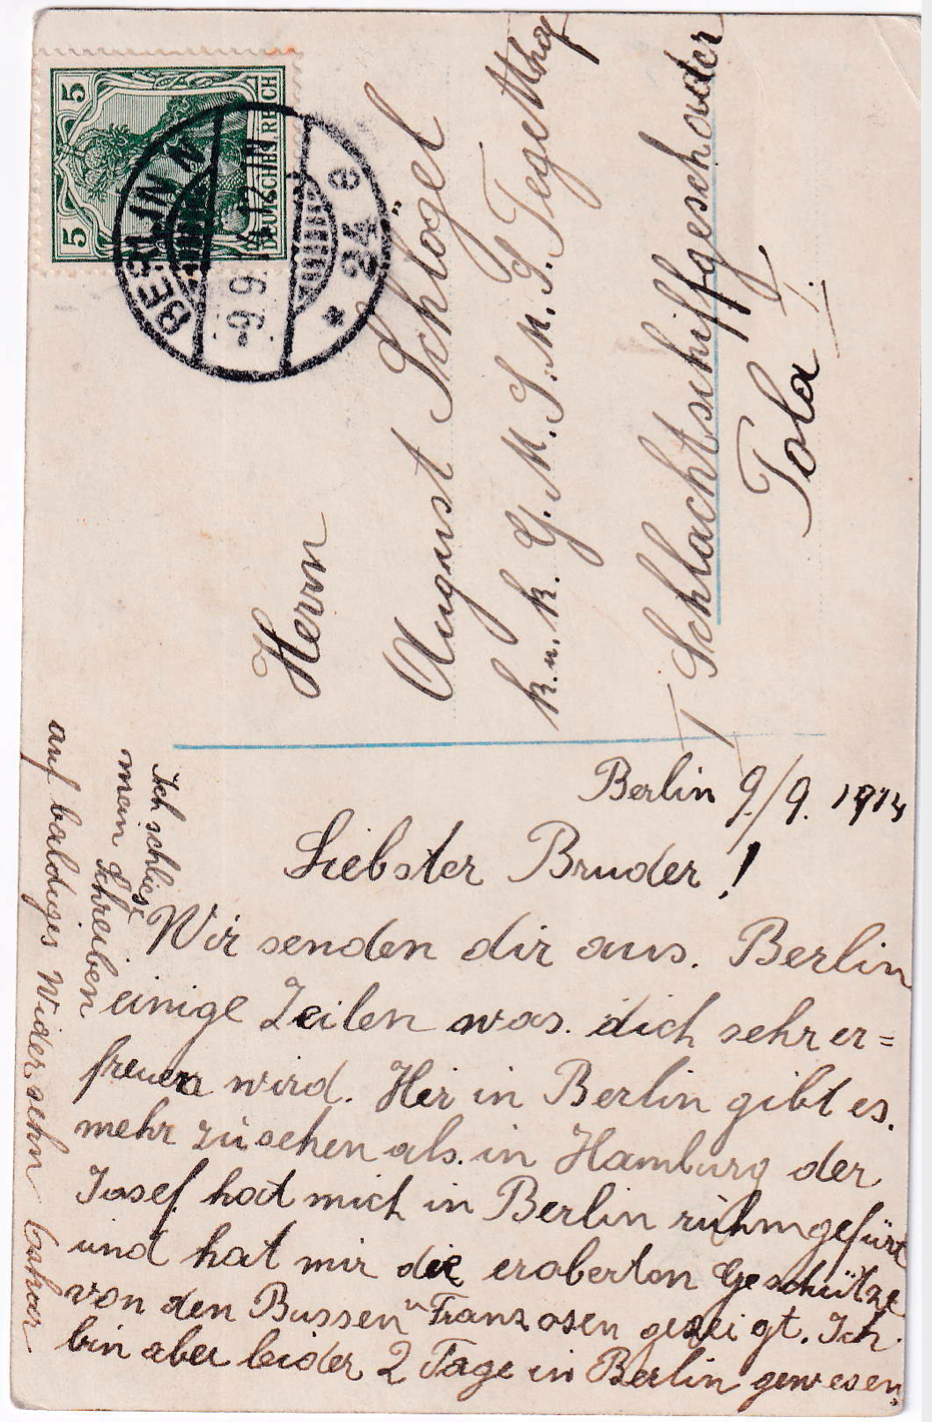 5
5
DEUTSCHES REICH
BERLIN N
* 24 e
9.9.
Herrn
August Schlögel
k. u. k. G. M. S. M. S. Tegetthof
Schlachtschiffgeschwader
Pola
Berlin 9/9. 1914
Liebster Bruder!
Wir senden dir aus. Berlin
einige Zeilen was. dich sehr er=
freuen wird. Hir in Berlin gibt es.
mehr zu sehen als. in Hamburg der
Josef hat mich in Berlin rühmgefürt
und hat mir die eroberten Geschütze
von den Russen u Franzosen gezeigt. Ich
bin aber leider 2 Tage in Berlin gewesen.
Ich schliese
mein Schreiben
auf baldiges Widersehn